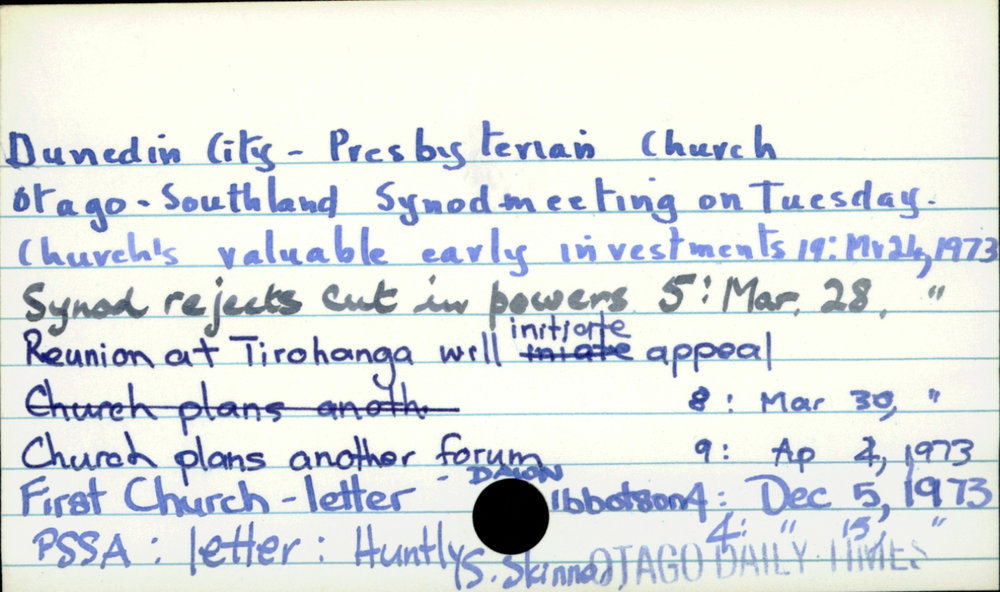 Dunedin City - Presbyterian Church
Otago - Southland Synod meeting on Tuesday.
Church's valuable early investments 19: Mr 24, 1973
Synod rejects cut in powers 5: Mar. 28, "
Reunion at Tirohanga will initiate appeal
Church plans anoth 8: Mar 30, "
Church plans another forum 9: Ap 2, 1973
First Church - letter - Ibbotson 4: Dec 5, 1973
PSSA: letter: Huntly (S. Skinner) 4: " 15, "
OTAGO DAILY TIMES